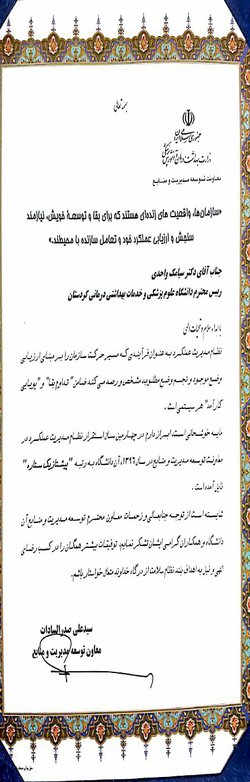 بسمه تعالی
جمهوری اسلامی ایران
وزارت بهداشت، درمان و آموزش پزشکی
معاونت توسعه مدیریت و منابع
«سازمان‌ها، واقعیت های زنده‌ای هستند که برای بقا و توسعهٔ خویش، نیازمند
سنجش و ارزیابی عملکرد خود و تعامل سازنده با محیطند.»
جناب آقای دکتر سیامک واحدی
رییس محترم دانشگاه علوم پزشکی و خدمات بهداشتی درمانی کردستان
با اهداء سلام و تحیات الهی
نظام مدیریت عملکرد به عنوان فرآیندی که مسیر حرکت سازمان را بر مبنای ارزیابی
وضع موجود و تجسم وضع مطلوب، مشخص و رصد می کند ضامن "تداوم بقا" و "پویایی
کارآمد" هر سیستمی است.
مایه خوشحالی است، ابراز دارم در چهارمین سال استقرار نظام مدیریت عملکرد در
معاونت توسعه مدیریت و منابع در سال ۱۳۹۶، آن دانشگاه به رتبه "پیشتاز یک ستاره"
نایل آمده است.
شایسته است از توجه جنابعالی و زحمات معاون محترم توسعه مدیریت و منابع آن
دانشگاه و همکاران گرامی ایشان تشکر نمایم. توفیقات بیشتر همگان را در کسب رضای
الهی و نیل به اهداف بلند نظام سلامت از درگاه خداوند متعال خواستار باشم.
سیدعلی صدرالسادات
معاون توسعه مدیریت و منابع